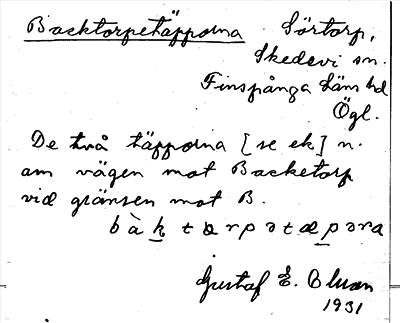 Backtorpetäpporna Sörtorp,
Skedevi sn.
Finspånga läns hd
Ögl.
De två täpporna [se ek] n.
om vägen mot Backetorp
vid gränsen mot B.
bàk tɒrpətæpəra
Gustaf E. Olson
1931